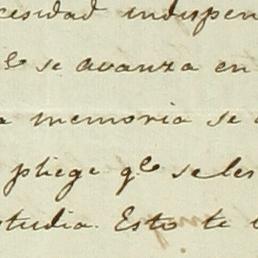 cesidad indispen
q.e se avanza en
a memoria se
pliege q.e se les
studia. Esto te